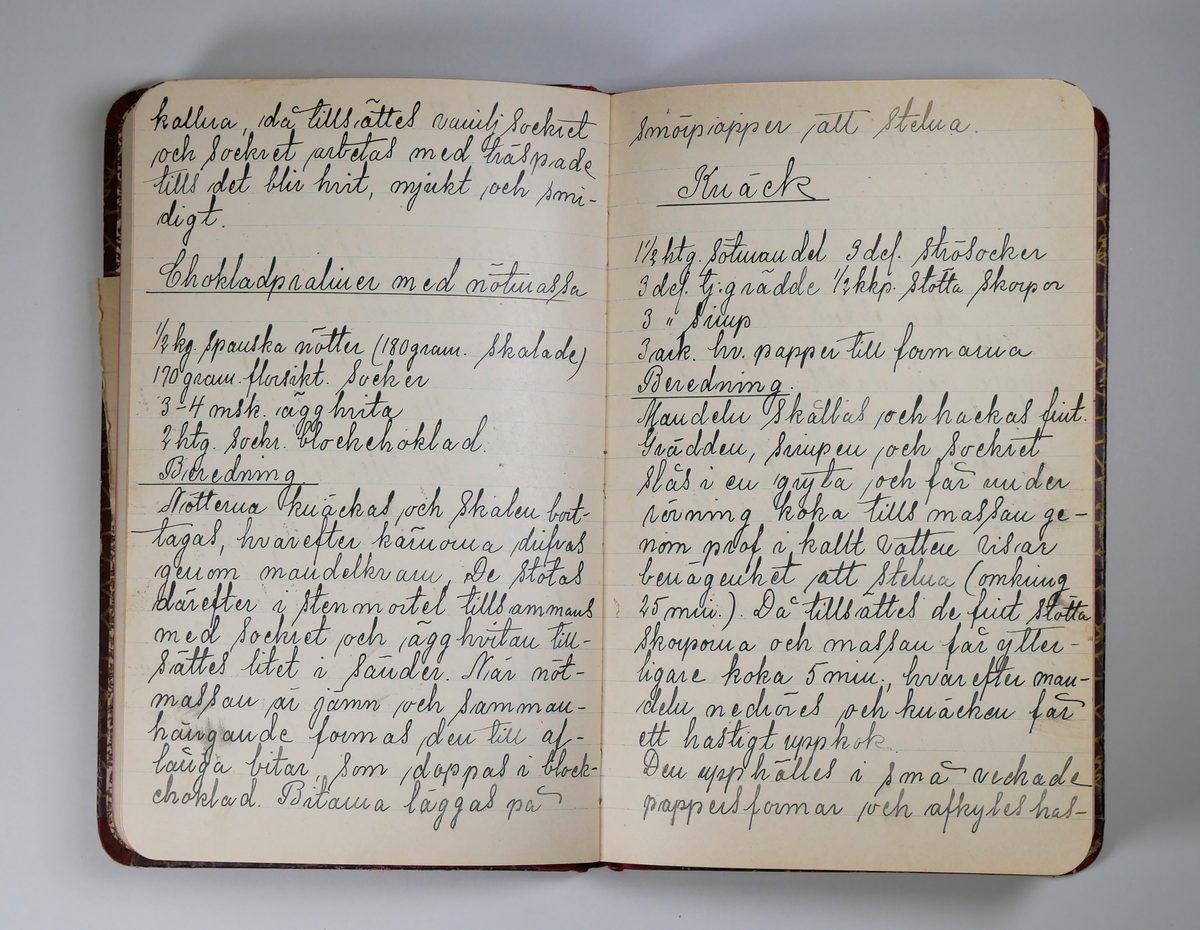 kallna, då tillsättes vanilj sockret
och sockret arbetas med träspade
tills det blir hvit, mjukt och smi-
digt.
Chokladpraliner med nötmassa
1/2 kg. spanska nötter (180 gram. skalade)
170 gram. florsikt. socker
3-4 msk. ägghvita
2 htg. sockr. blockchoklad.
Beredning
Nötterna knäckas och skalen bort-
tagas, hvarefter kärnorna drifvas
genom mandelkvarn. De stötas
därefter i stenmortel tillsammans
med sockret och ägghvitan till-
sättes litet i sänder. När nöt-
massan är jämn och samman-
hängande formas den till af-
långa bitar, som doppas i block-
choklad. Bitarna läggas på
smörpapper att stelna.
Knäck
1 1/2 htg. sötmandel 3 def. strösocker
3 def. tj. grädde 1/2 kkp. stötta skorpor
3 " sirup
3 ark. hv. papper till formarna
Beredning.
Mandeln skållas och hackas fint.
Grädden, sirupen och sockret
slås i en gryta och får under
rörning koka tills massan ge-
nom prof i kallt vatten visar
benägenhet att stelna (omkring
25 min.). Då tillsättes de fint stötta
skorporna och massan får ytter-
ligare koka 5 min., hvarefter man-
deln nedröres och knäcken får
ett hastigt uppkok.
Den upphälles i små veckade
pappersformar och afkyles has-